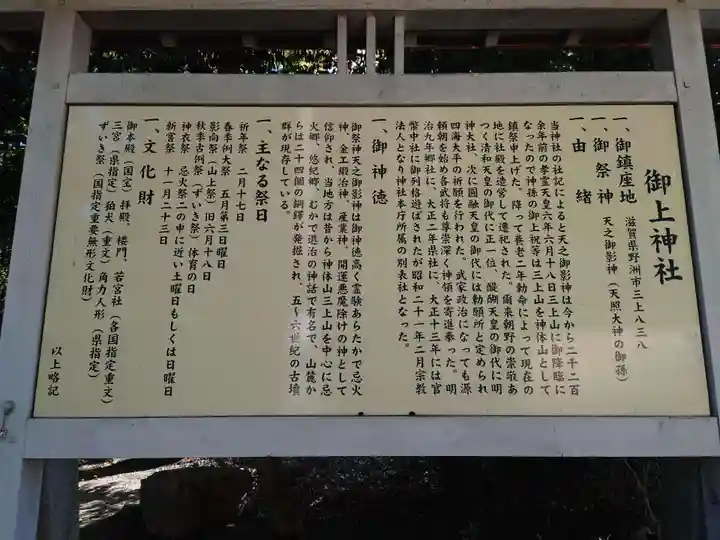 御上神社
一、御鎮座地　滋賀県野洲市三上八三八
一、御祭神　天之御影神（天照大神の御孫）
一、由緒
当神社の社記によると天之御影神は今から二千二百
余年前の孝霊天皇六年六月十八日三上山に御降臨に
なったので神孫の御上祝等は三上山を神体山として
鎮祭申上げた。降って養老二年勅命によって現在の
地に社殿を造営して遷祀された。爾来朝野の崇敬あ
つく清和天皇の御代に正一位、醍醐天皇の御代に明
神大社、次に圓融天皇の御代には勅願所と定められ
四海太平の祈願を行われた。武家政治になっても源
頼朝を始め各武将も尊崇深く神領を寄進奉った。明
治九年郷社に、大正二年県社に、大正十三年には官
幣中社に御列格遊ばされたが昭和二十一年二月宗教
法人となり神社本庁所属の別表社となった。
一、御神徳
御祭神天之御影神は御神徳高く霊験あらたかで忌火
神、金工鍛冶神、産業神、開運悪魔除けの神として
信仰され、当地方は昔から神体山三上山を中心に忌
火郷、悠紀郷、むかで退治の神話で有名で、山麓か
らは二十四個の銅鐸が発掘され、五～六世紀の古墳
群が現存している。
一、主なる祭日
祈年祭　二月十七日
春季例大祭　五月第三日曜日
影向祭（山上祭）旧六月十八日
秋季古例祭（ずいき祭）体育の日
神衣祭　忌火祭二の申に近い土曜日もしくは日曜日
新嘗祭　十一月二十三日
一、文化財
御本殿（国宝）拝殿、楼門、若宮社（各国指定重文）
三宮（県指定）狛犬（重文）角力人形（県指定）
ずいき祭（国指定重要無形文化財）
以上略記